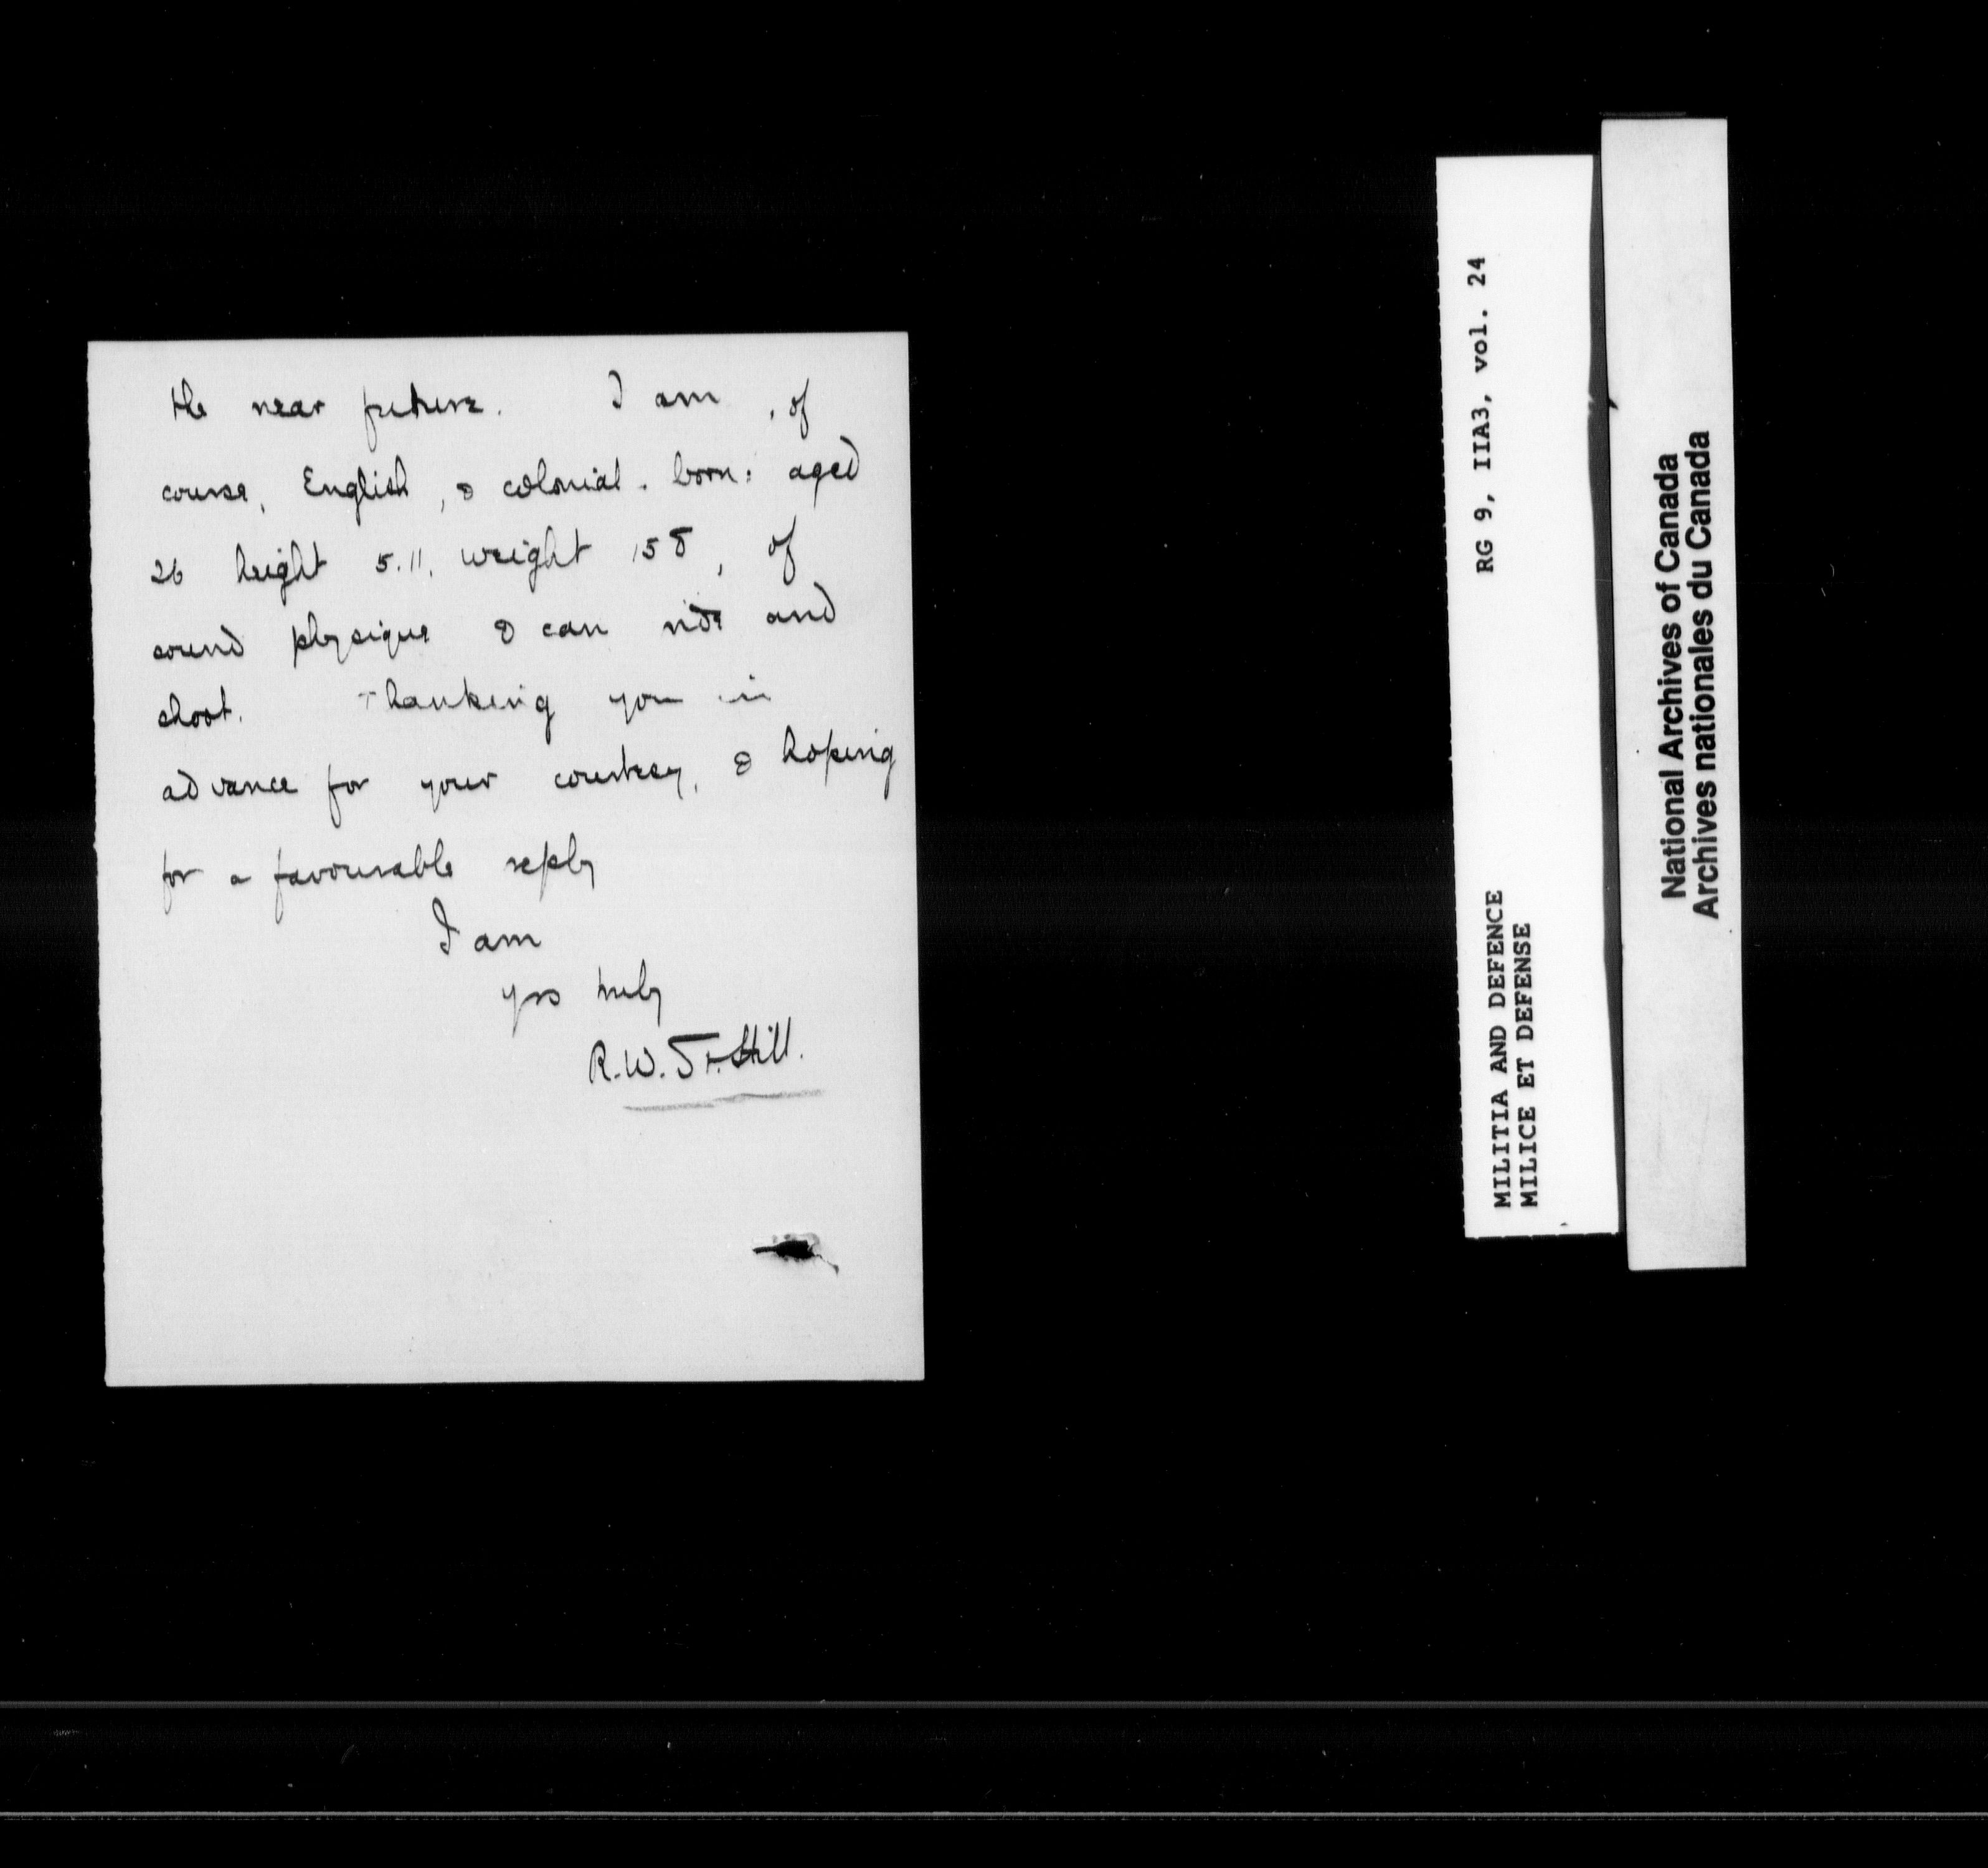 the near future. I am, of
course, English, & colonial-born: aged
26 height 5.11, weight 158, of
sound physique & can ride and
shoot. Thanking you in
advance for your courtesy, & hoping
for a favourable reply
I am
yrs truly
R.W. St. Hill.
RG 9, IIA3, vol. 24
MILITIA AND DEFENCE
MILICE ET DEFENSE
National Archives of Canada
Archives nationales du Canada